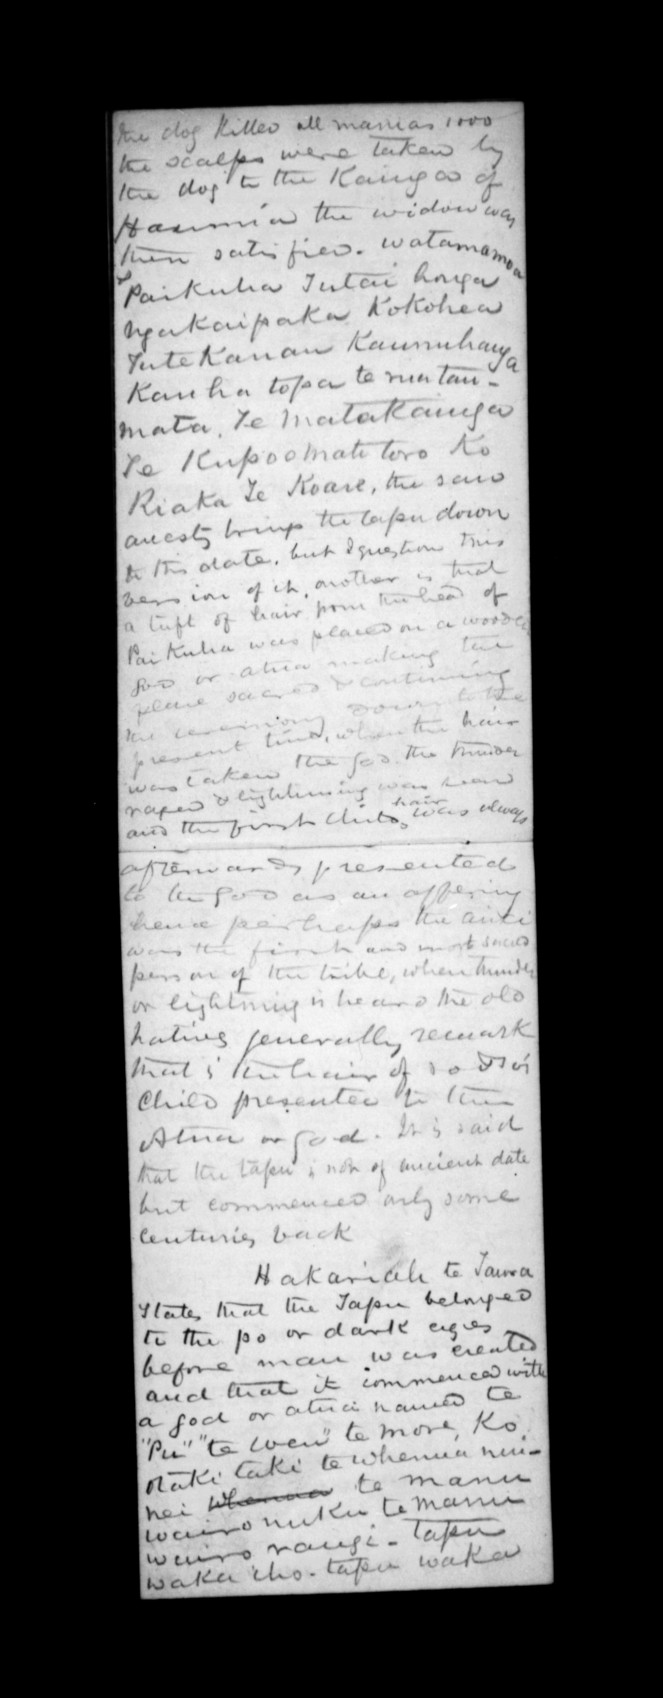 the dog killed all manias 1000
the scalps were taken by
the dog to the Kainga of
Haumia the widow was
then satisfied. watamamoa
Paikuha Tutai honga
ngakaipaka Kokohea
Tute Kanau Kaunuhanga
Kauha topa te rua tau-
mata, Te Matakainga
Te Kupoomatotoro Ko
Riaka Te Koare, the said
ancestry brings the tapu down
to this date, but I question this
version of it, another is that
a tuft of hair from the head of
Paikuha was placed on a wooden
god or atua making the
place sacred & continuing
the ceremony down to the
present time, when the hair
was taken the god the thunder
raged & lightning was seen
and the first child's hair was always
afterwards presented
to the god as an offering
hence perhaps the ariki
was the first and most sacred
person of the tribe, when thunder
or lightning is heard the old
natives generally remark
that is the hair of so & so's
child presented to the
Atua or god. It is said
that the tapu is not of ancient date
but commenced only some
centuries back
Hakariah te Tawra
States that the Tapu belonged
to the po or dark ages
before man was created
and that it commenced with
a god or atua named te
"Pu" "te weu" te more, Ko
otaki taki te whenua nui-
nei whenua te manu
wairo nuku te manu
wairo rangi - tapu
waka iho - tapu waka